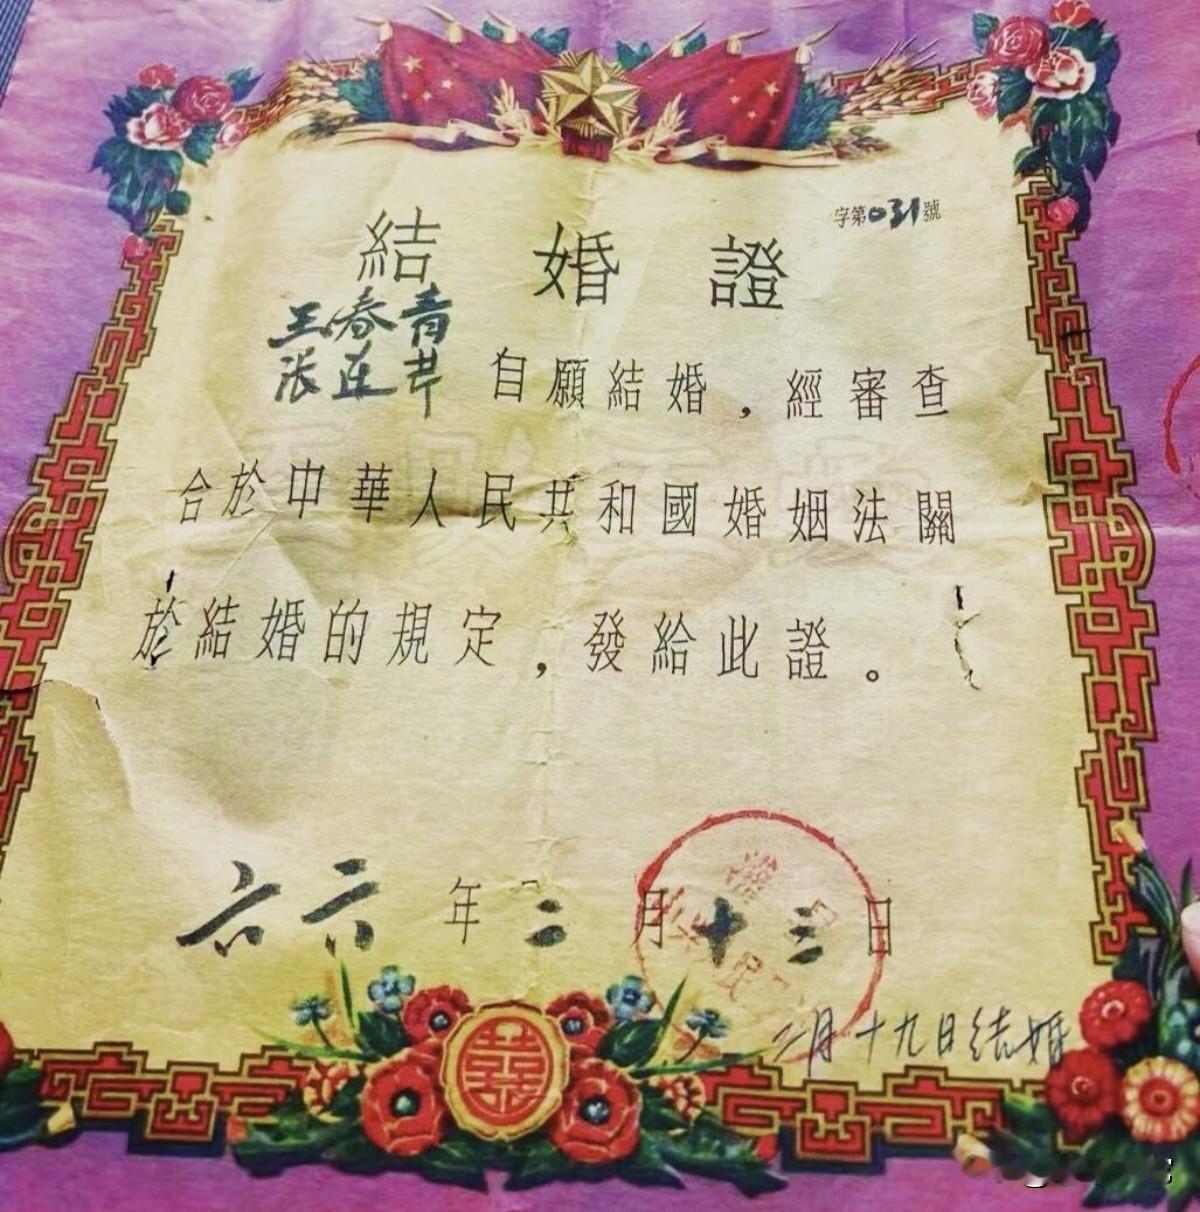 字第031號
結婚證
王春青
张连芹 自願結婚，經審查
合於中華人民共和國婚姻法關
於結婚的規定，發給此證。
六六年二月十三日
二月十九日结婚
囍